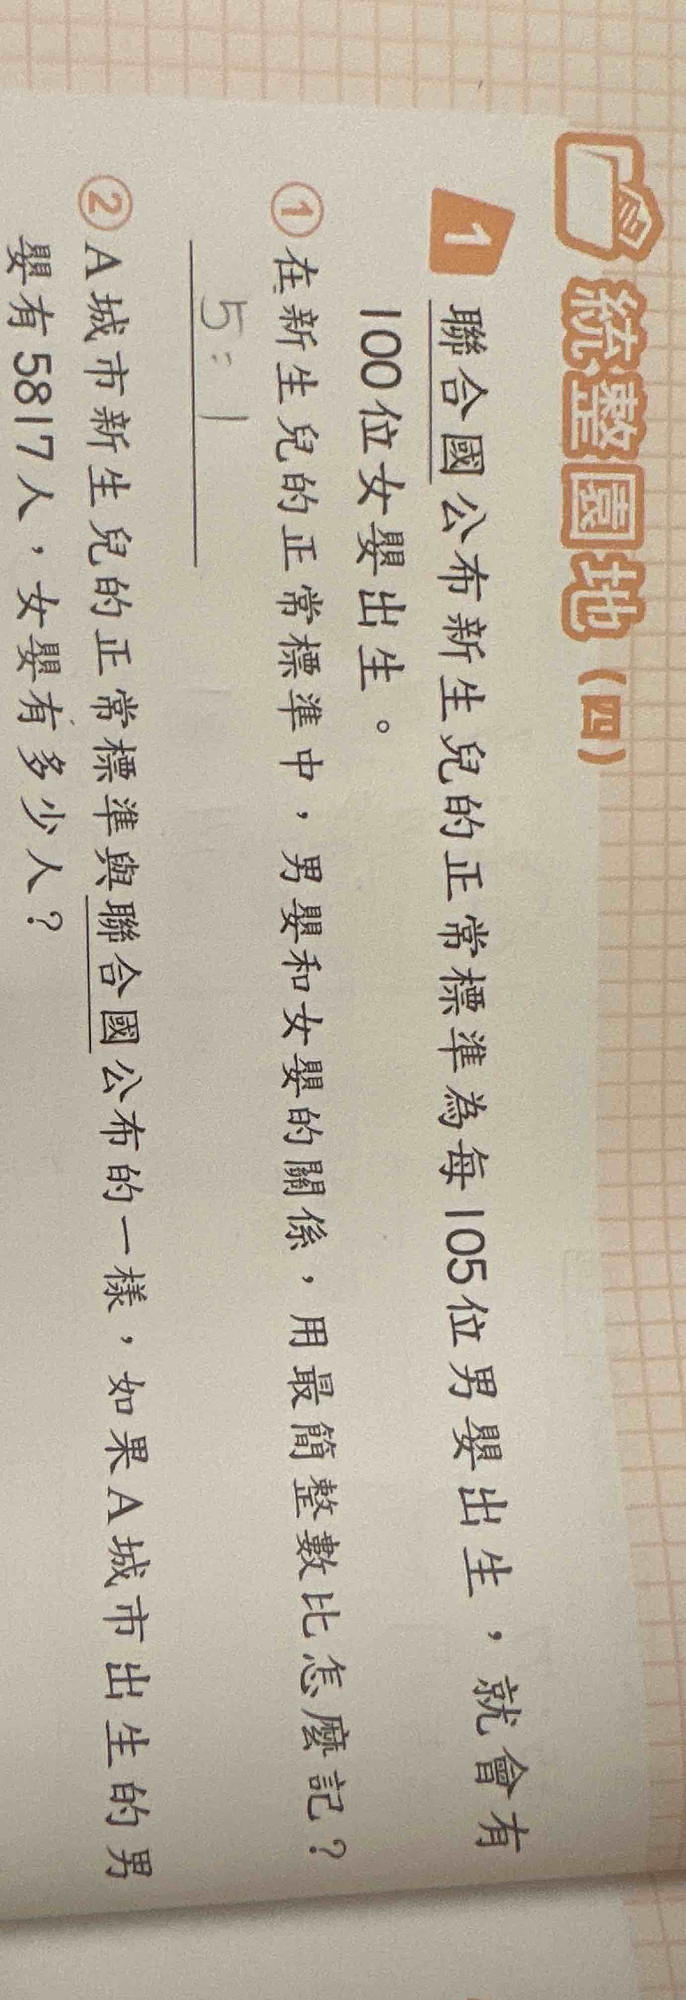 統整園地(四)
1 聯合國公布新生兒的正常標準為每105位男嬰出生,就會有
100位女嬰出生。
①在新生兒的正常標準中,男嬰和女嬰的關係,用最簡整數比怎麼記?
5:1
②A城市新生兒的正常標準與聯合國公布的一樣,如果A城市出生的男
嬰有5817人,女嬰有多少人?